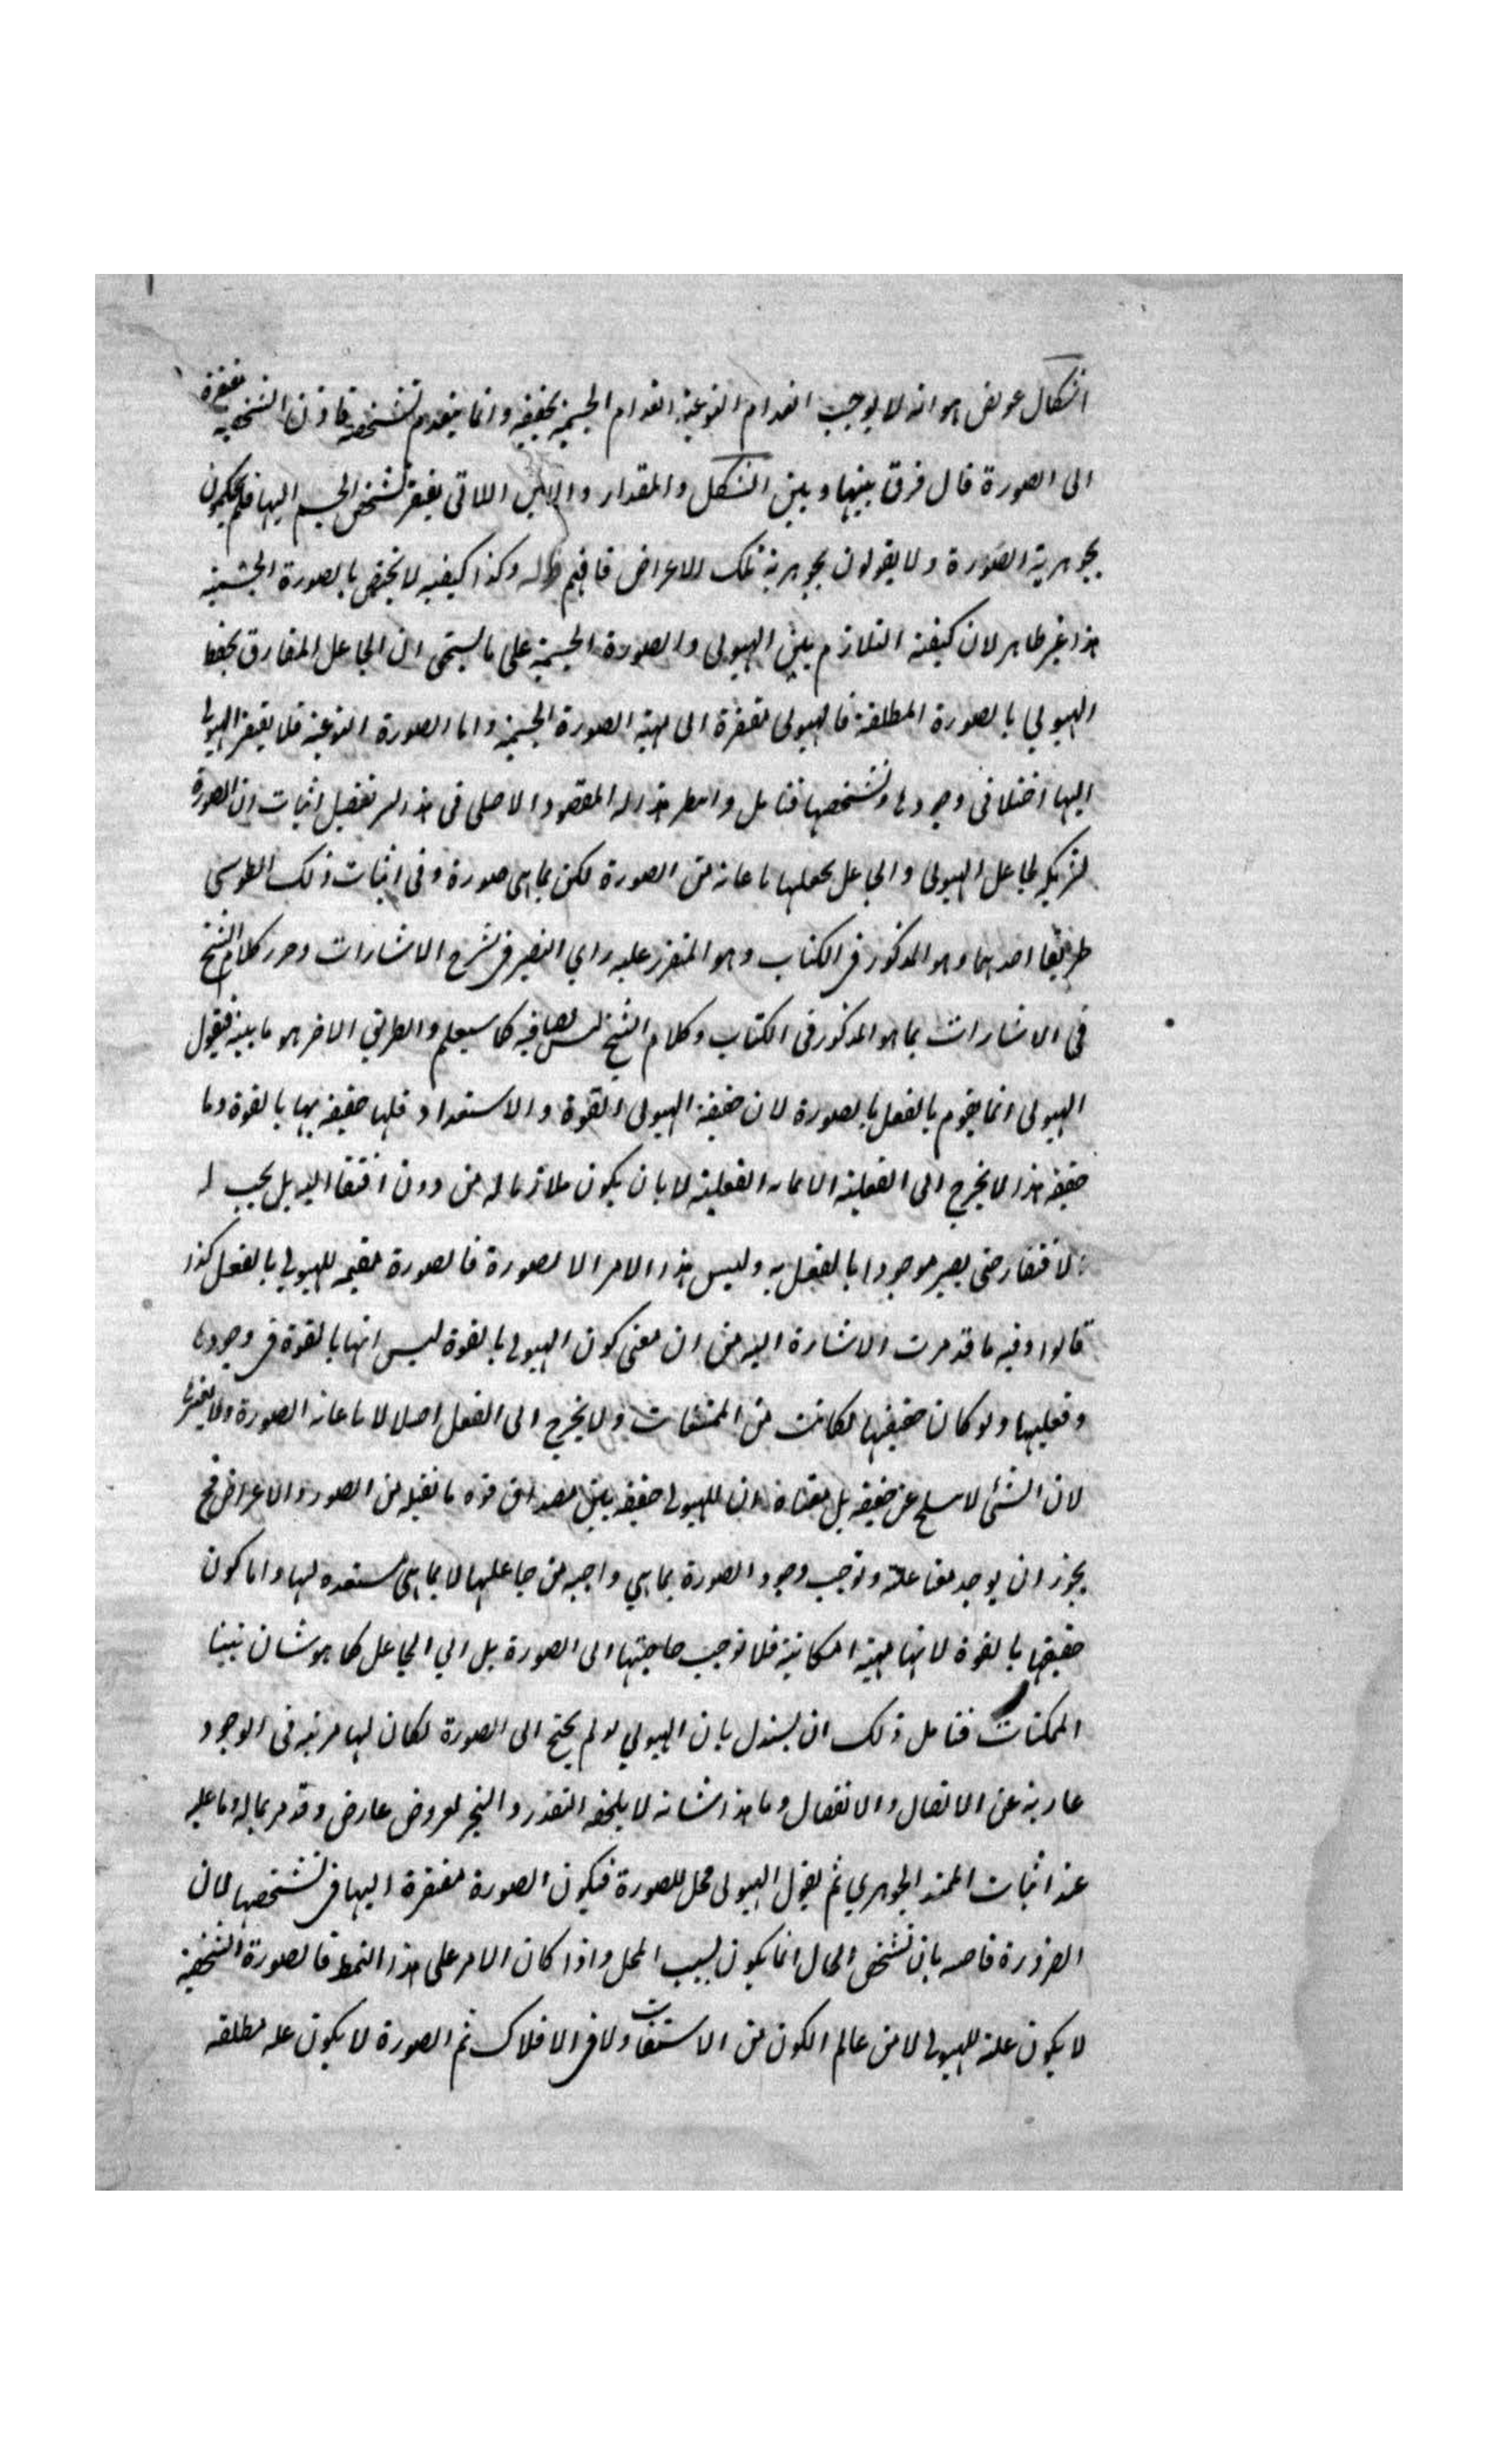 اشكال عويص هو انه لا يوجب انعدام النوعية انعدام الجسمية بحقيقته وانما ينعدم تشخصه فاذن الشخصية مفتقرة
الى الصورة قال فرق بينها وبين الشكل والمقدار والاين اللاتى يفتقر تشخص الجسم اليها فلم يحكمون
بجوهرية الصورة ولا يقولون بجوهرية تلك الاعراض فافهم قوله وكذا كيفية لا يختص بالصورة الجسمية
هذا غير ظاهر لان كيفية التلازم بين الهيولى والصورة الجسمية على ما يسمى ان الجاعل المفارق يحفظ
الهيولي بالصورة المطلقة فالهيولى مفتقرة الى مهية الصورة الجسمية واما الصورة النوعية فلا يفتقر الهيولى
اليها اختلافى وجودها وتشخصها فتامل المقصود الاصلى فى هذا تفصيل اثبات ان الصورة
شريكة لجاعل الهيولى والجاعل يجعلها باعانة من الصورة لكن بما هى صورة وفى اثبات ذلك الطوسى
طريقا احدهما وهو المذكور فى الكتاب وهو المتقرر عليه راي النصير فى شرح الاشارات وحرر كلام الشيخ
فى الاشارات بما هو المذكور فى الكتاب وكلام الشيخ ليس فيه كما سيعلم والطريق الاخر هو ما بينه فيقول
الهيولى انما يقوم بالفعل بالصورة لان حقيقة الهيولى القوة والاستعداد فلها حقيقة بها بالقوة وما
حقيقة هذا لا يخرج الى الفعلية الا بما له الفعلية لا بان يكون ملازما له من دون افتقا اليه بل يجب له
الافتقار حتى يصير موجودا بالفعل به وليس هذا الامر الا لصورة فالصورة مقيمة للهيولي بالفعل كذا
قالوا وفيه ما قد مرت الاشارة اليه من ان معنى كون الهيولي بالقوة ليس انها بالقوة فى وجودها
وفعليتها ولو كان حقيقتها لكانت من الممتنعات ولا يخرج الى الفعل اصلا لا باعانه الصورة ولا بغيرها
لان الشئ لا ينسلخ عن حقيقة بل معناه ان للهيولي حقيقة بين مصداق قوة ما تقبله من الصور والاعراض فح
يجوز ان يوجد بفاعلة وتوجب وجود الصورة بما هي واجبة من جاعلها لا بما هى مستعده لها واما كون
حقيقتها بالقوة لانها مهية امكانية فلا توجب حاجتها الى الصورة بل الي الجاعل كما هو شان
الممكنات فتامل ذلك ان يستدل بان الهيولي لو لم يحتج الى الصورة لكان لها مرتبة فى الوجود
عارية عن الاتصال والانفصال وما هذا شانه لا يلحقه التقدر والتحيز لعروض عارض وقد مر بماله وما عليه
عند اثبات الممتد الجوهري ثم يقول الهيولى محل للصورة فيكون الصورة مفتقرة اليها فى تشخصها لان
الضرورة قاضية بان تشخص الحال انما يكون بسبب المحل واذا كان الامر على هذا النمط فالصورة الشخصية
لا يكون علة للهيولي لا من عالم الكون من الاستقات ولا فى الافلاك ثم الصورة لا يكون علة مطلقه